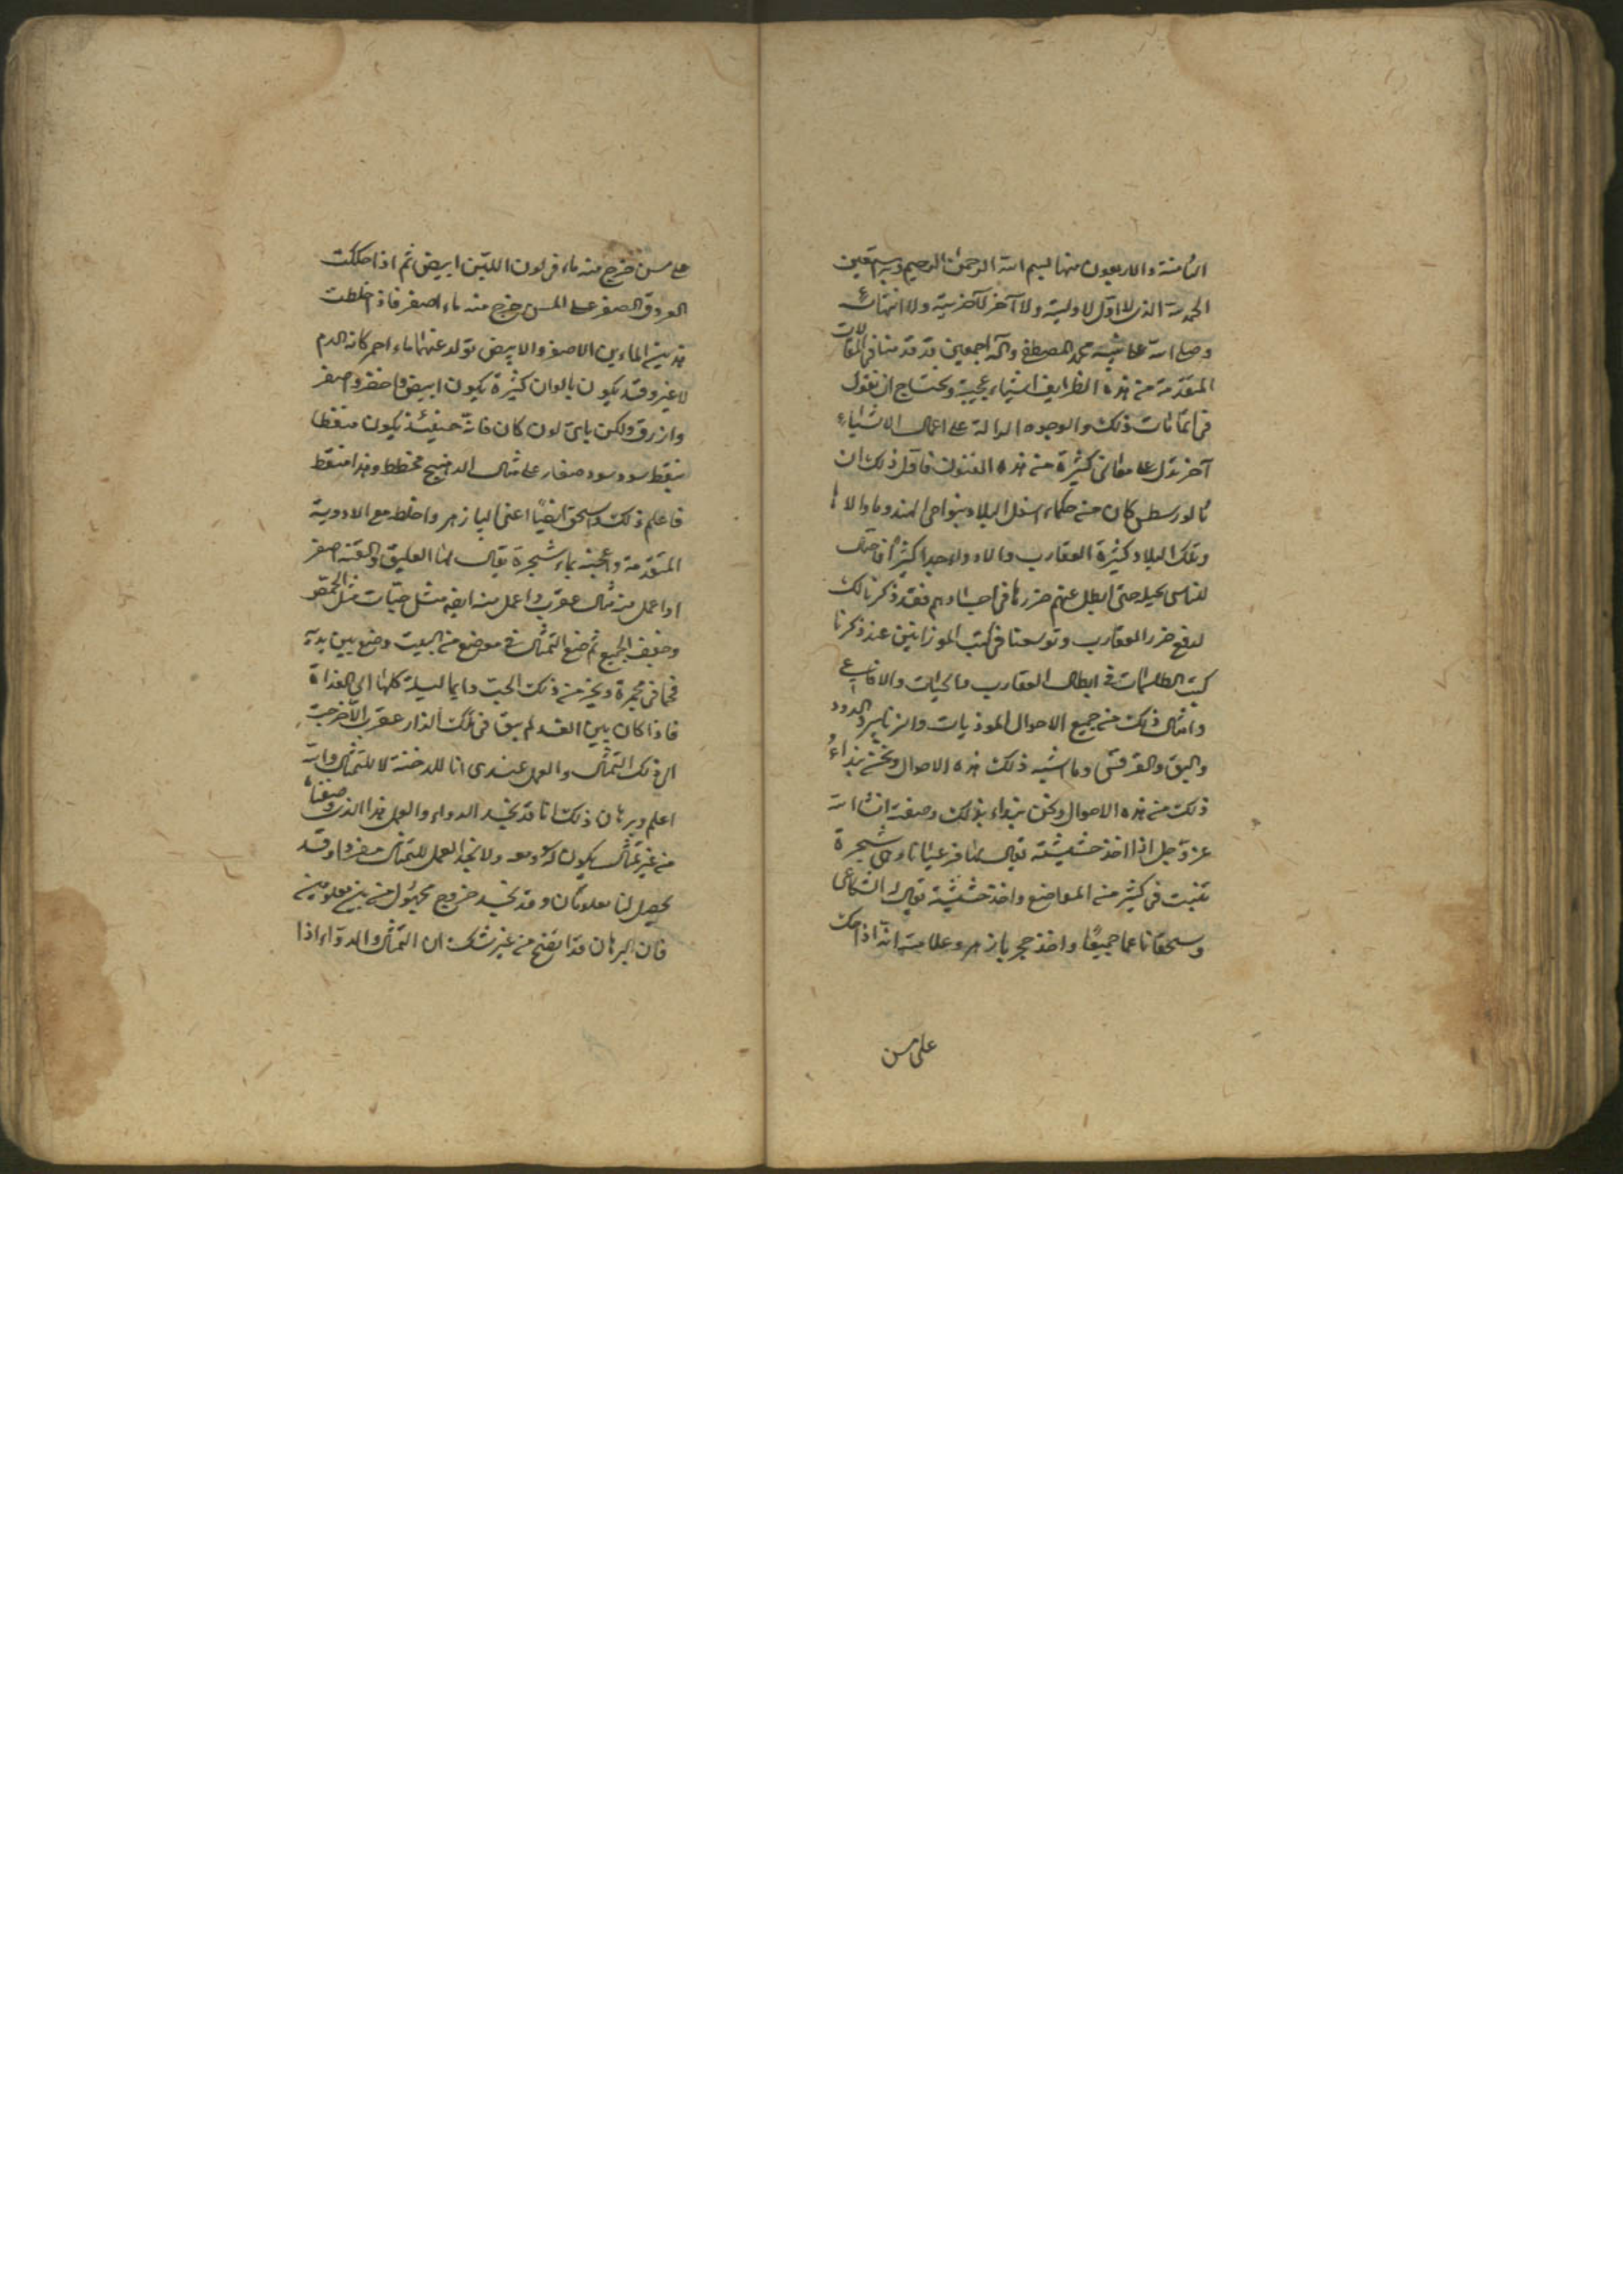 الثامنة والاربعون منها بسم الله الرحمن الرحيم وبه نستعين
الحمد لله الذى لا اوّل لاوليته ولا آخر لآخريته ولا انتهاء
وصلى الله على نبيه محمد المصطفى وآله اجمعين قد قدمنا فى المقالات
المتقدمة من هذه الطرايف اشياء عجيبة ونحتاج ان نقول
فى ذلك والوجوه الدالة على اعمال الاشياء
آخر تدل على معانى كثيرة من هذه الفنون فاول ذلك ان
كان من حكماء اسفل البلاد بنواحى الهند وما والاها
وتلك البلاد كثيرة العقارب والاد ولاجدا كثيرا فاحتال
للناس بحيلة حتى ابطل عنهم ضررها فى اجسادهم فقد ذكرنا لك
لدفع ضرر العقارب وتوسعنا فى كتب الموازين عند ذكرنا
كتب الطلسمات فى ابطال العقارب والحيات والافاعى
وامثال ذلك من جميع الاحوال الموذيات والزنابير والدود
والبق والقرقس وما اشبه ذلك هذه الاحوال ونحن نبداء
ذلك من هذه الاحوال ونحن نبداء بذلك وصفته انشاء الله
عز وجل اذا اخذ حشيشة يقال لها وهى شجرة
تنبت فى كثير من المواضع واخذ حشيشة يقال لها الشكاعى
وسحقا ناعما جميعًا واخذ حجر بازهر وعلامته انه اذا حك
على مسن
على مسن خرج منه ماء فى لون اللبن ابيض ثم اذا حككت
العروق الصفر على المسن خرج منه ماء اصفر فاذا خلطت
هذين الماءين الاصفر والابيض تولد عنهما ماء احمر كانه الدم
لا غير وقد يكون بالوان كثيرة يكون ابيض واخضر واصفر
وازرق ولكن باىّ لون كان فانه حينئذ يكون منقطا
بنقط سود سود صغار على مثال الدهنج مخطط وهذا منقط
فاعلم ذلك واسحق ايضًا اعنى البازهر واخلطه مع الادوية
المتقدمة واعجنه بماء شجرة يقال لها العليق والقنه اصفر
اواعمل منه مثال عقرب واعمل منه ايضا مثل حبات مثل الحمص
وجفف الجميع ثم ضع التمثال فى موضع من البيت وضع بين يديه
فحما فى مجمرة وبخر من ذلك الحب دايما ليلة كلها الى الغداة
فاذا كان بين الغد لم يبق فى تلك الدار عقرب الا خرجت
الى ذلك التمثال والعمل عندى انا للدخنة لا للتمثال والله
اعلم وبرهان ذلك انا قد نجد الدواء والعمل هذا الذى وصفناه
من غير تمثال يكون له ومعه ولا نجد العمل للتمثال مفردا وقد
يحصل لنا معلومان وقد نجد خروج مجهول من بين معلومين
فان البرهان قد اتضح من غير شك ان التمثال والدواء اذا